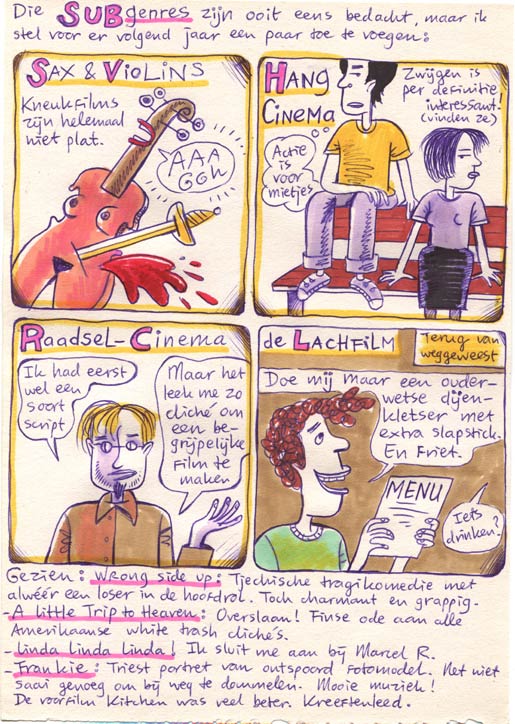 Die SUBgenres zijn ooit eens bedacht, maar ik
stel voor er volgend jaar een paar toe te voegen:
SAX & VIOLINS
Kneukfilms
zijn helemaal
niet plat.
AAA
GGH
HANG
CINEMA
Zwijgen is
per definitie
interessant!
(vinden ze)
Actie
is
voor
mietjes
RAADSEL-CINEMA
Ik had eerst
wel een
soort
script
Maar het
leek me zo
cliché om
een be-
grijpelijke
film te
maken
de LACHFILM
Terug van
weggeweest
Doe mij maar een ouder-
wetse dijen-
kletser met
extra slapstick.
En Friet.
MENU
Iets
drinken?
Gezien: Wrong side up: Tjechische tragikomedie met
alwéér een loser in de hoofdrol. Toch charmant en grappig.
- A little Trip to Heaven: Overslaan! Finse ode aan alle
Amerikaanse white trash cliché's.
- Linda Linda Linda! Ik sluit me aan bij Marcel R.
- Frankie: Triest portret van outspoord fotomodel. Net niet
saai genoeg om bij weg te dommelen. Mooie muziek!
De voorfilm Kitchen was veel beter. Kreeftenleed.